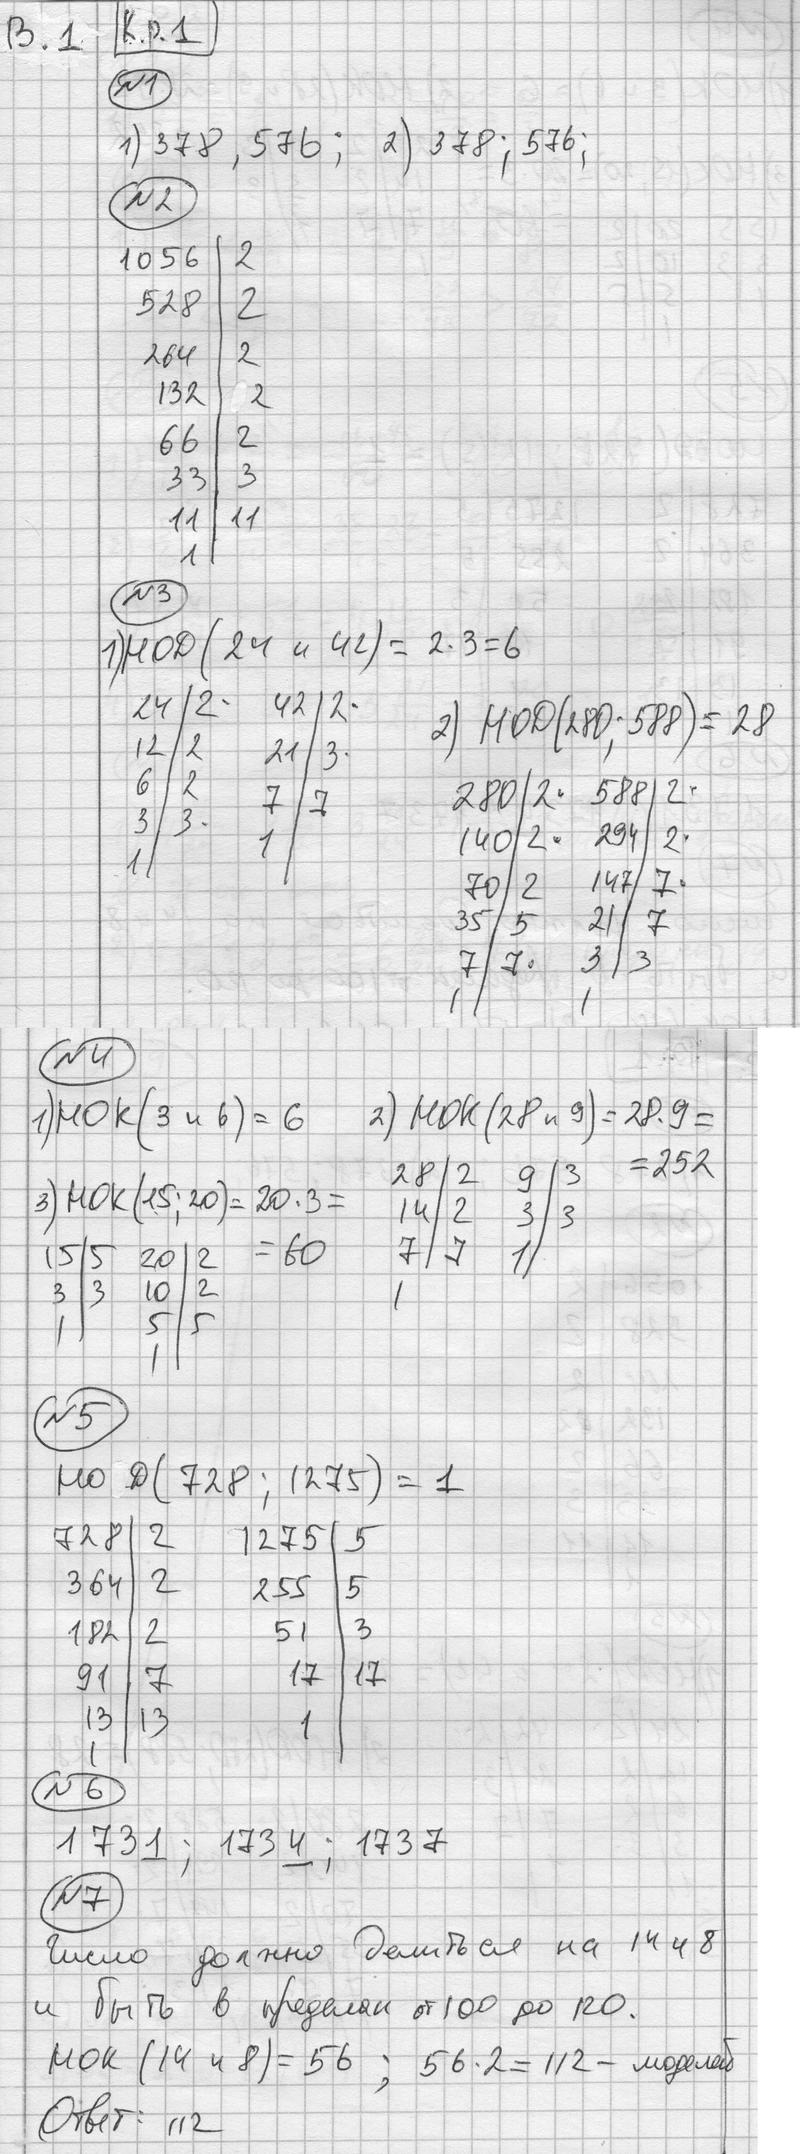 В.1 К.р.1
№1
1) 378, 576; 2) 378; 576;
№2
1056 | 2
528 | 2
264 | 2
132 | 2
66 | 2
33 | 3
11 | 11
1
№3
1) НОД(24 и 42) = 2·3=6
24 | 2· 42 | 2·
12 | 2 21 | 3·
6 | 2 7 | 7
3 | 3· 1
1
2) НОД(280; 588) = 28
280 | 2· 588 | 2·
140 | 2· 294 | 2·
70 | 2 147 | 7·
35 | 5 21 | 7
7 | 7· 3 | 3
1 1
№4
1) НОК(3 и 6) = 6 2) НОК(28 и 9) = 28·9=
=252
28 | 2 9 | 3
14 | 2 3 | 3
7 | 7 1
1
3) НОК(15; 20) = 20·3=
=60
15 | 5 20 | 2
3 | 3 10 | 2
1 5 | 5
1
№5
НОД(728; 1275) = 1
728 | 2 1275 | 5
364 | 2 255 | 5
182 | 2 51 | 3
91 | 7 17 | 17
13 | 13 1
1
№6
1731; 1734; 1737
№7
Число должно делиться на 14 и 8
и быть в пределах от 100 до 120.
НОК (14 и 8) = 56; 56·2=112 – моделей
Ответ: 112